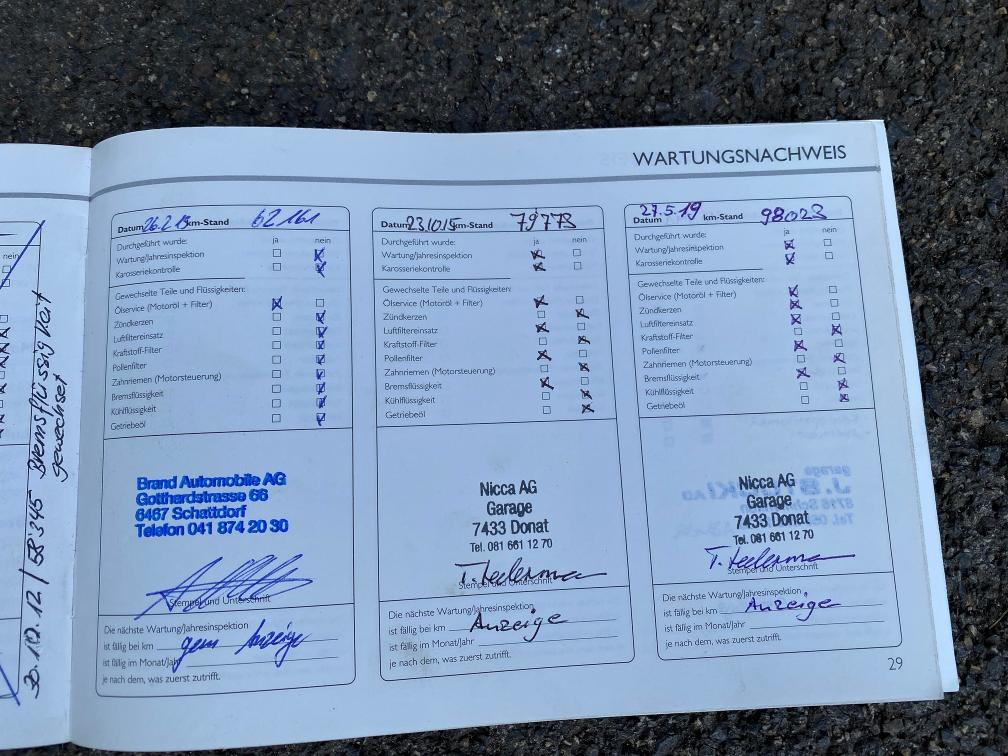 WARTUNGSNACHWEIS
nein
30.10.12 / 58'345 Bremsflüssigkeit
gewechset
Datum 26.2.13 km-Stand 62161
Durchgeführt wurde: ja nein
Wartung/Jahresinspektion
Karosseriekontrolle
Gewechselte Teile und Flüssigkeiten:
Ölservice (Motoröl + Filter)
Zündkerzen
Luftfiltereinsatz
Kraftstoff-Filter
Pollenfilter
Zahnriemen (Motorsteuerung)
Bremsflüssigkeit
Kühlflüssigkeit
Getriebeöl
Brand Automobile AG
Gotthardstrasse 66
6467 Schattdorf
Telefon 041 874 20 30
Stempel und Unterschrift
Die nächste Wartung/Jahresinspektion
ist fällig bei km gem Anzeige
ist fällig im Monat/Jahr
je nach dem, was zuerst zutrifft.
Datum 23.10.15 km-Stand 79773
Durchgeführt wurde: ja nein
Wartung/Jahresinspektion
Karosseriekontrolle
Gewechselte Teile und Flüssigkeiten:
Ölservice (Motoröl + Filter)
Zündkerzen
Luftfiltereinsatz
Kraftstoff-Filter
Pollenfilter
Zahnriemen (Motorsteuerung)
Bremsflüssigkeit
Kühlflüssigkeit
Getriebeöl
Nicca AG
Garage
7433 Donat
Tel. 081 661 12 70
Stempel und Unterschrift
Die nächste Wartung/Jahresinspektion
ist fällig bei km Anzeige
ist fällig im Monat/Jahr
je nach dem, was zuerst zutrifft.
Datum 27.5.19 km-Stand 98023
Durchgeführt wurde: ja nein
Wartung/Jahresinspektion
Karosseriekontrolle
Gewechselte Teile und Flüssigkeiten:
Ölservice (Motoröl + Filter)
Zündkerzen
Luftfiltereinsatz
Kraftstoff-Filter
Pollenfilter
Zahnriemen (Motorsteuerung)
Bremsflüssigkeit
Kühlflüssigkeit
Getriebeöl
Nicca AG
Garage
7433 Donat
Tel. 081 661 12 70
Stempel und Unterschrift
Die nächste Wartung/Jahresinspektion
ist fällig bei km Anzeige
ist fällig im Monat/Jahr
je nach dem, was zuerst zutrifft.
29